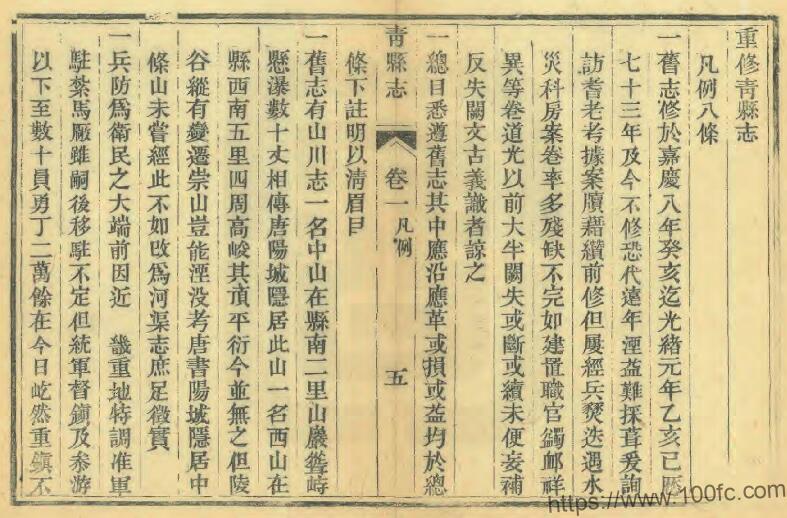 重修青縣志
凡例八條
一舊志修於嘉慶八年癸亥迄光緒元年乙亥已歷
七十三年及今不修恐代遠年湮益難採葺爰詢
訪耆老考據案牘藉纘前修但屢經兵燹迭遇水
災科房案卷率多殘缺不完如建置職官蠲卹祥
異等卷道光以前大半闕失或斷或續未便妄補
反失闕文古義識者諒之
一總目悉遵舊志其中應沿應革或損或益均於總
條下註明以清眉目
一舊志有山川志一名中山在縣南二里山巖聳峙
懸瀑數十丈相傳唐陽城隱居此山一名西山在
縣西南五里四周高峻其頂平衍今並無之但陵
谷縱有變遷崇山豈能湮没考唐書陽城隱居中
條山未嘗經此不如改為河渠志庶足徵實
一兵防為衛民之大端前因近 畿重地特調准軍
駐紮馬廠雖嗣後移駐不定但統軍督鎮及叅游
以下至數十員勇丁二萬餘在今日屹然重鎮不
青縣志 卷一 凡例 五
https://www.100fc.com